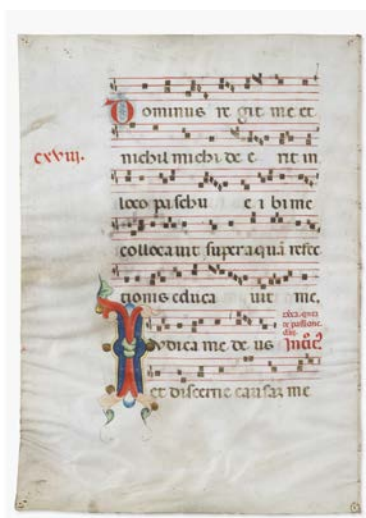 Dominus re git me et
cxviii.
nichil michi de e rit in
loco paschu e i bi me
collocavit super aquā refec
tionis educa vit me.
Ivdica me de us
et discerne causaz me